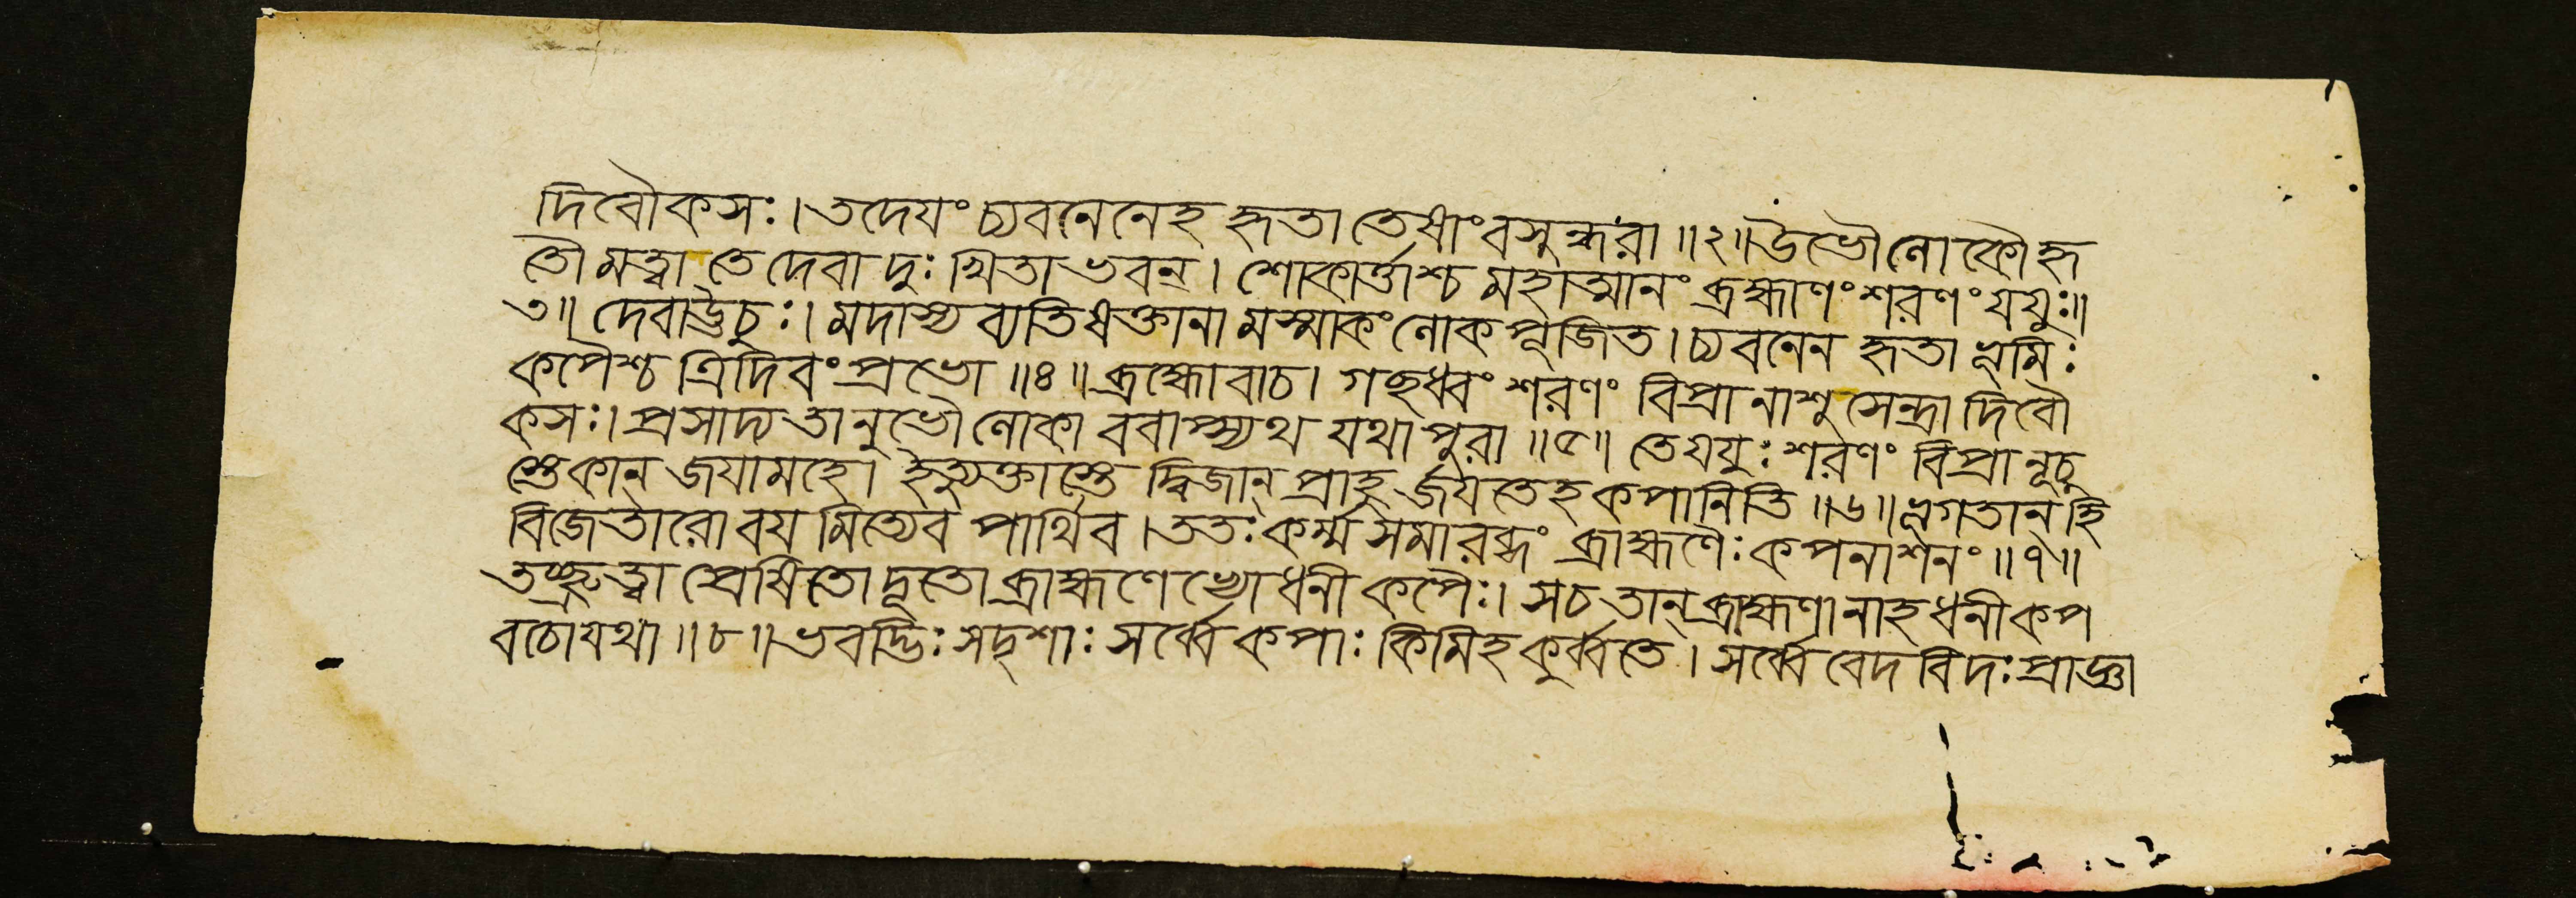 দিবৌকসঃ। তদেযং চ্যবনেনেহ হৃতা তেষাং বসুন্ধরা ॥২॥ উভৌ লোকৌ হৃ
তৌ মত্বা তে দেবা দুঃখিতা ভবন্। শোকার্ত্তাশ্চ মহাত্মানং ব্রহ্মাণং শরণং যযুঃ॥
৩॥ দেবা ঊচুঃ। মদাস্য ব্যতিষক্তানামস্মাকং লোকপূজিত। চ্যবনেন হৃতা ভূমিঃ
কপৈশ্চ ত্রিদিবং প্রভো ॥৪॥ ব্রহ্মোবাচ। গচ্ছধ্বং শরণং বিপ্রানাশু সেন্দ্রা দিবৌ
কসঃ। প্রসাদ্য তানুভৌ লোকাববাপ্স্যথ যথা পুরা ॥৫॥ তে যযুঃ শরণং বিপ্রানূচু
স্তে কান্ জযামহে। ইত্যুক্তাস্তে দ্বিজান্ প্রাহুর্জযতেহ কপানিতি ॥৬॥ ভূগতান্ হি
বিজেতারো বযমিত্যেব পার্থিব। ততঃ কর্ম্ম সমারব্ধং ব্রাহ্মণৈঃ কপনাশনং ॥৭॥
তচ্ছ্রুত্বা প্রেষিতো দূতো ব্রাহ্মণেভ্যো ধনী কপৈঃ। স চ তান্ ব্রাহ্মণানাহ ধনী কপ
বচো যথা ॥৮॥ ভবদ্ভিঃ সদৃশাঃ সর্ব্বে কপাঃ কিমিহ কুর্ব্বতে। সর্ব্বে বেদবিদঃ প্রাজ্ঞা